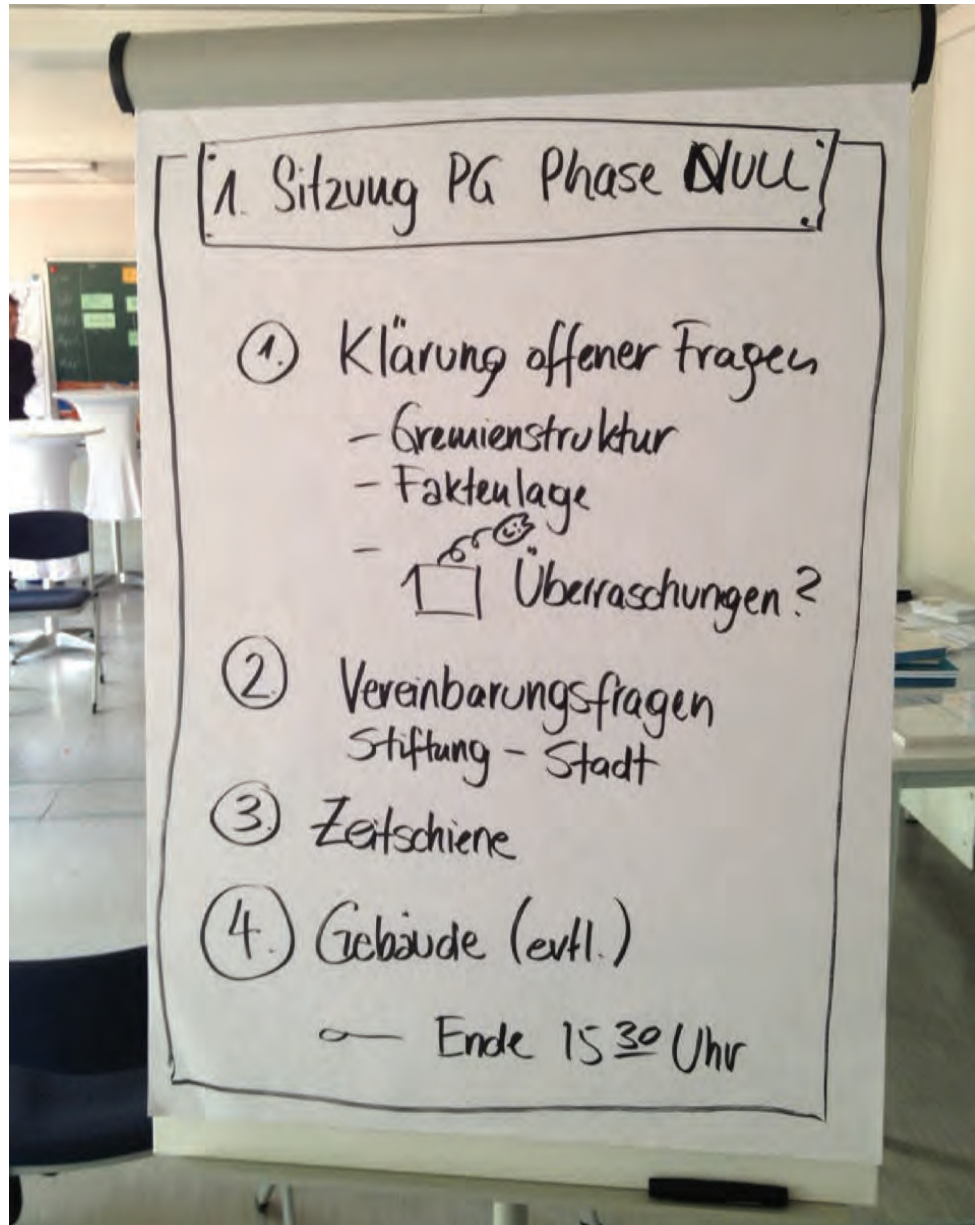 1. Sitzung PG Phase NULL
1. Klärung offener Fragen
- Gremienstruktur
- Faktenlage
- Überraschungen?
2. Vereinbarungsfragen
Stiftung - Stadt
3. Zeitschiene
4. Gebäude (evtl.)
Ende 15 30 Uhr